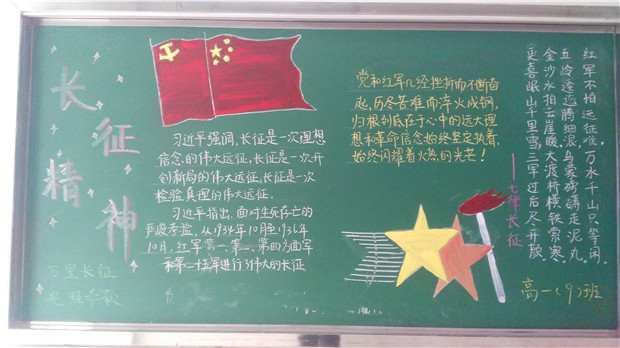 长征精神
万里长征
习近平强调,长征是一次理想
信念的伟大远征,长征是一次开
创新局的伟大远征,长征是一次
检验真理的伟大远征。
习近平指出,面对生死存亡的
严峻考验,从1934年10月至1936年
10月,红军第一、第二、第四方面军
和第二十五军进行了伟大的长征
党和红军几经挫折而不断奋
起,历尽苦难而淬火成钢,
归根到底在于心中的远大理
想和革命信念始终坚定执着,
始终闪耀着火热的光芒!
红军不怕远征难,万水千山只等闲。
五岭逶迤腾细浪,乌蒙磅礴走泥丸。
金沙水拍云崖暖,大渡桥横铁索寒。
更喜岷山千里雪,三军过后尽开颜。
——七律长征
高一(9)班